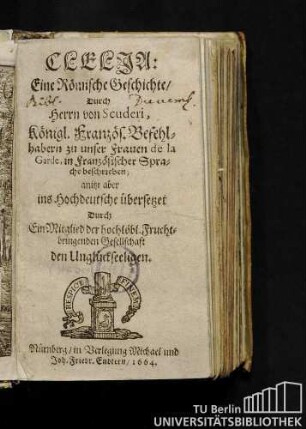 CLELIA:
Eine Römische Geschichte/
Durch
Herrn von Scuderi,
Königl. Französ. Befehl-
habern zu unser Frauen de la
Garde, in Französischer Spra-
che beschrieben;
anitzt aber
ins Hochdeutsche übersetzet
Durch
Ein Mitglied der hochlöbl. Frucht-
bringenden Gesellschaft
den Unglückseeligen.
Nürnberg/ in Verlegung Michael und
Joh. Friedr. Endtern/ 1664.
TU Berlin
UNIVERSITÄTSBIBLIOTHEK